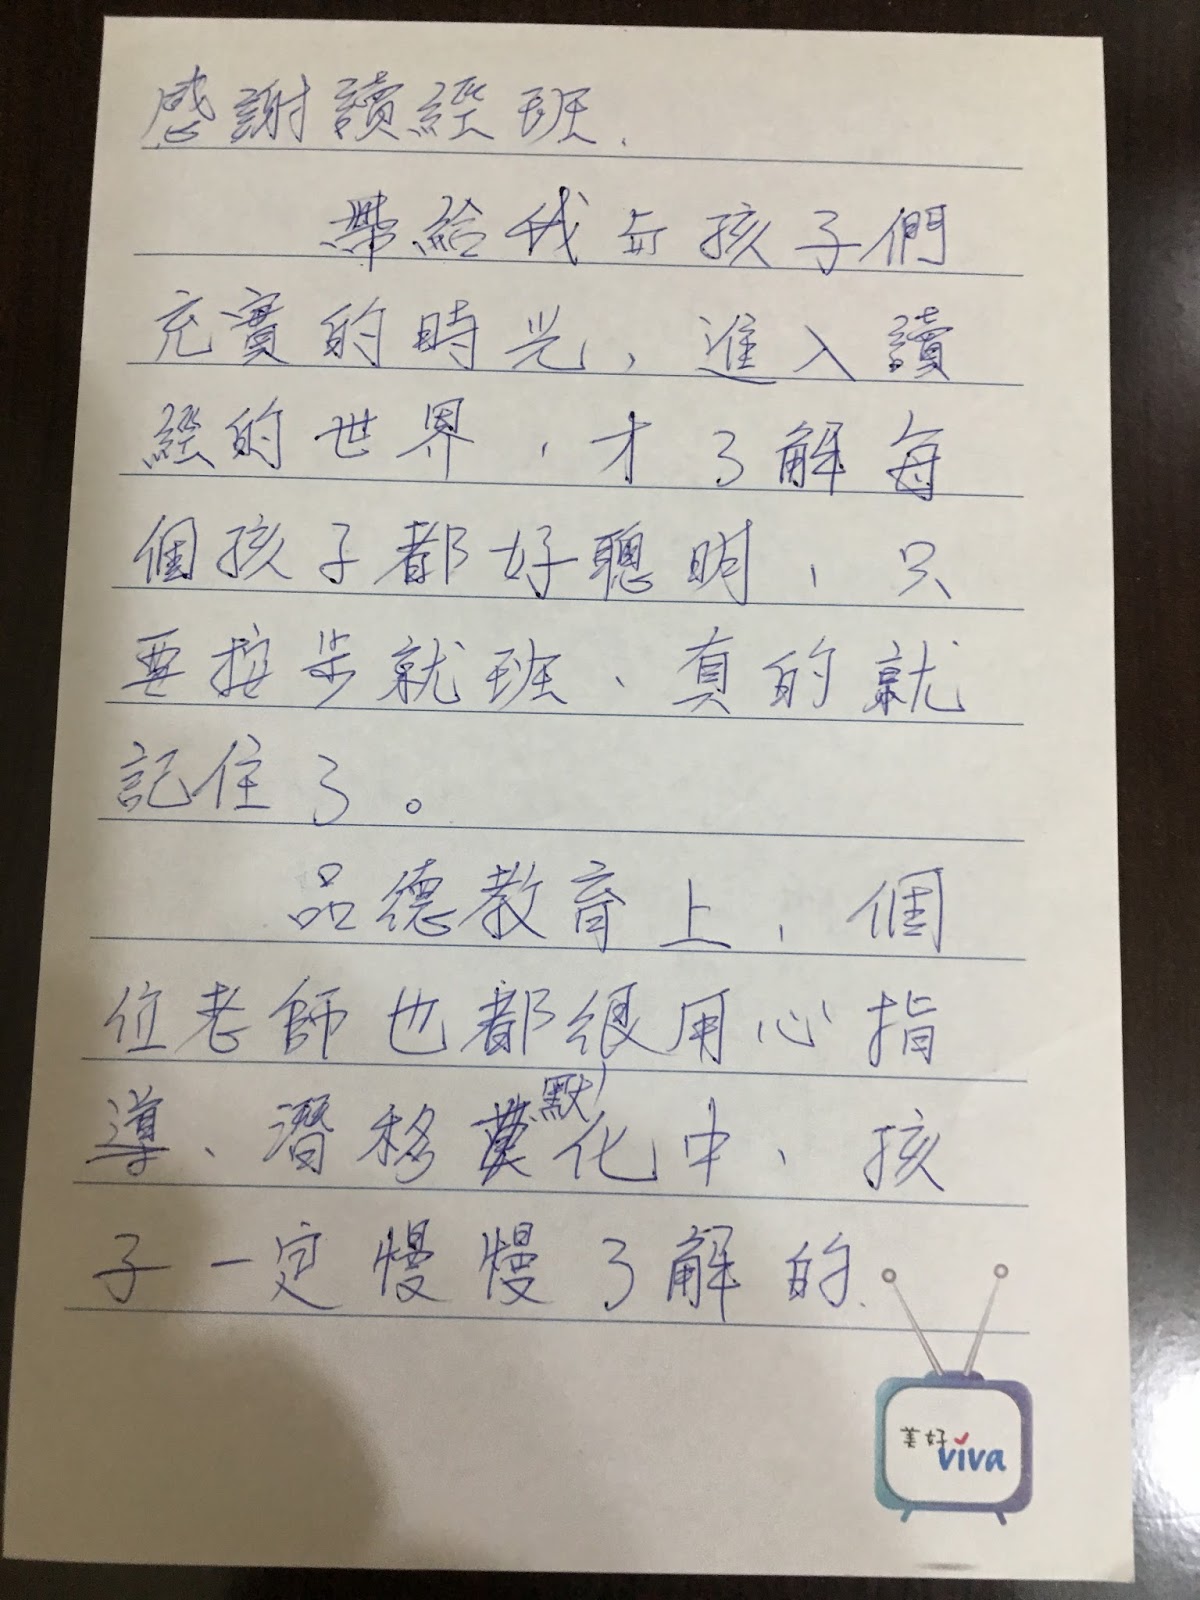 感謝讀經班.
帶給我与孩子們
充實的時光,進入讀
經的世界,才了解每
個孩子都好聰明,只
要按步就班、真的就
記住了。
品德教育上,個
位老師也都很用心指
導、潛移默化中、孩
子一定慢慢了解的.
美好
viva